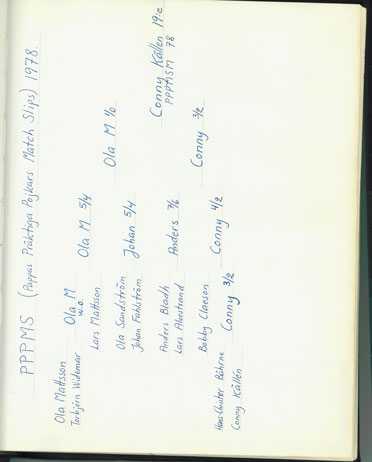 PPPMS (Pappas Präktiga Pojkars Match Slips) 1978.
Ola Mattsson
Torbjörn Widemar
Ola M.
w.o.
Lars Mattsson
Ola M 5/4
Ola Sandström
Johan Fahlström
Johan 5/4
Ola M 1/0
Anders Bladh
Lars Alvestrand
Anders 7/6
Bobby Claeson
Hans-Christer Böhrne
Conny Källén
Conny 3/2
Conny 4/2
Conny 3/2
Conny Källen 19:e
PPPMSM 78